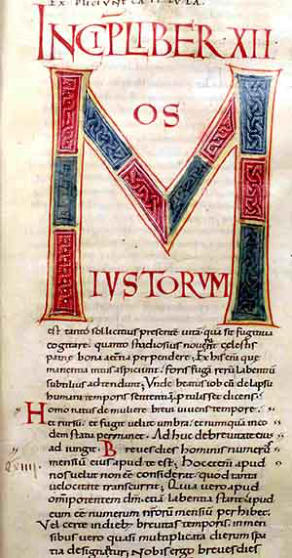 EXPLICIUNT CAPITULA.
INCIP LIBER XII
MOS
IUSTORUM
est tanto sollicitius presente uita quã sit fugitiua
cogitare. quanto studiosius nouerit celestis
patrie bona aeterna perpendere. Ex his eni que
manentia intus aspiciunt. foris fugã rerũ labentiũ
subtilius adtendunt; Unde beatus iob cũ de lapsu
humani temporis sententiã ptulisset dicens.
Homo natus de muliere breui uiuens tempore.
et rursũ. et fugit uelut umbra. et numquã in eo
dem statu permanet. Adhuc de breuitate eius
adiungit. Breues dies hominis numerus
mensiũ eius apud te est; Hoc etenĩ apud
nos uelut non eẽ considerat. quod tanta
uelocitate transcurrit; Quia uero apud
omnipotentem dm̃. etiã labentia stant. apud
eum eẽ numerum nrorũ mensiũ perhibet;
Vel certe in dieb breuitas temporis. in men
sibus uero quasi multiplicata dierum spa
tia designatur; Nobis ergo breues dies